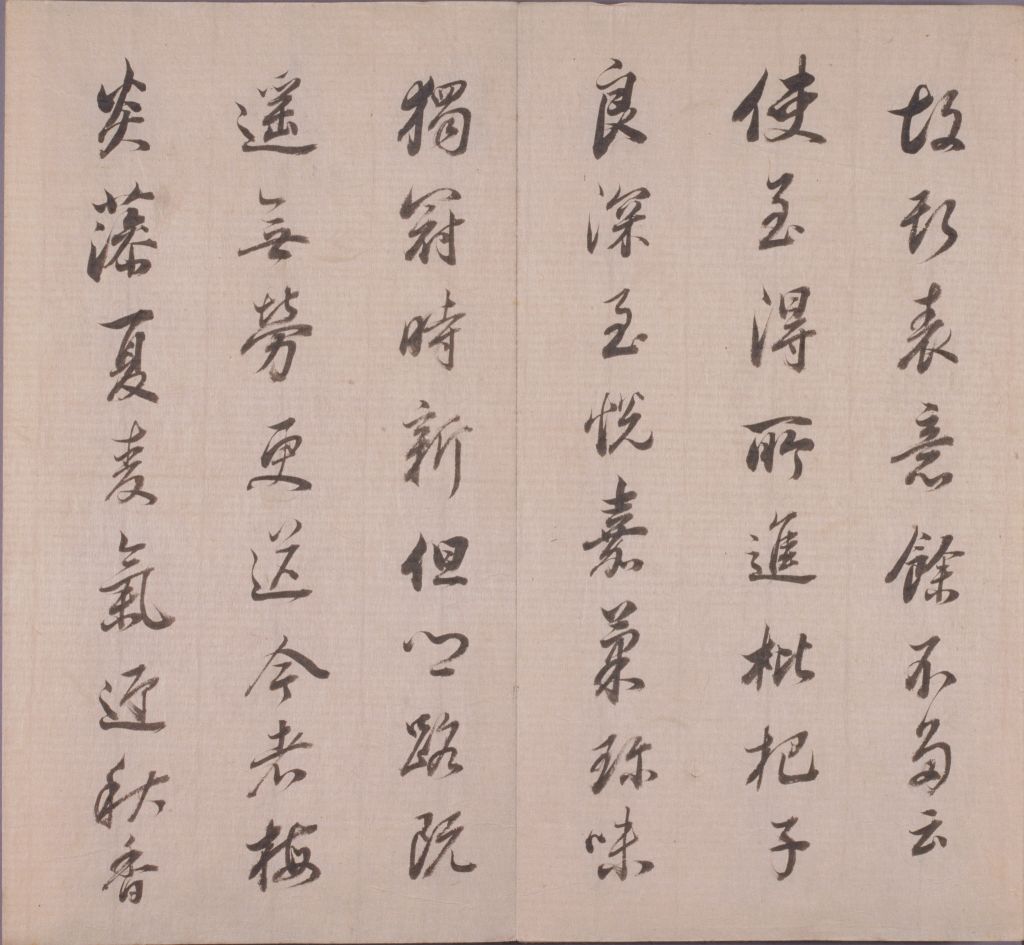 故斯表意餘不多云
使至得所進枇杷子
良深至悅嘉菓珍味
獨冠時新但川路既
遥無勞更送今者梅
炎藻夏麦氣迎秋香